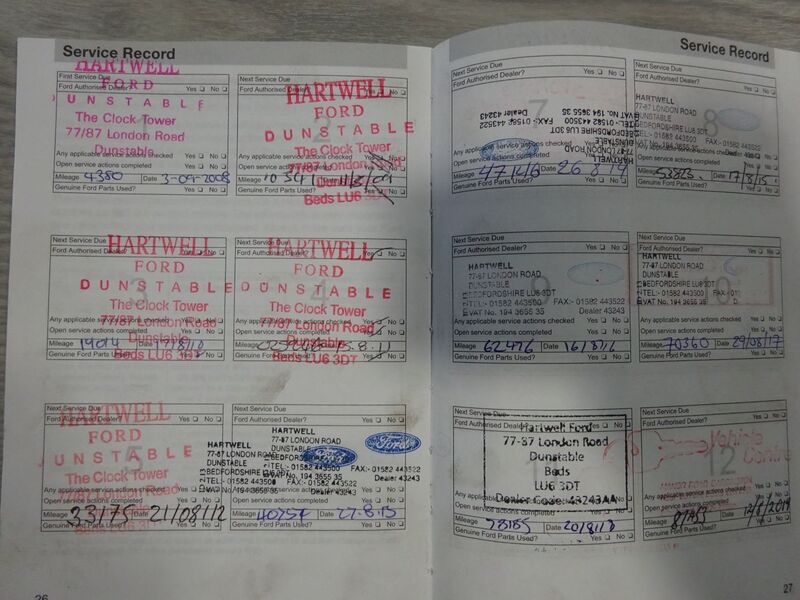 Service Record
First Service Due
Ford Authorised Dealer? Yes No
HARTWELL
FORD
DUNSTABLE
The Clock Tower
77/87 London Road
Dunstable
Any applicable service actions checked Yes No
Open service actions completed Yes No
Mileage 4380 Date 3-09-2008
Genuine Ford Parts Used? Yes No
Next Service Due
Ford Authorised Dealer? Yes No
HARTWELL
FORD
DUNSTABLE
The Clock Tower
77/87 London Road
Dunstable
Beds LU6
Any applicable service actions checked
Open service actions completed
Mileage Date
Genuine Ford Parts Used?
Next Service Due
Ford Authorised Dealer? Yes No
HARTWELL
FORD
DUNSTABLE
The Clock Tower
77/87 London Road
Dunstable
Beds LU6 3DT
Any applicable service actions checked
Open service actions completed
Mileage 19014 Date 17/8/10
Genuine Ford Parts Used?
Next Service Due
Ford Authorised Dealer? Yes No
HARTWELL
FORD
DUNSTABLE
The Clock Tower
77/87 London Road
Dunstable
Beds LU6 3DT
Any applicable service actions checked Yes No
Open service actions completed Yes No
Mileage 15.8.11
Genuine Ford Parts Used? Yes No
Next Service Due
Ford Authorised Dealer? Yes No
HARTWELL
FORD
DUNSTABLE
The Clock Tower
Any applicable service actions checked
Open service actions completed
Mileage 33175 Date 21/08/12
Genuine Ford Parts Used?
Next Service Due
Ford Authorised Dealer? Yes No
HARTWELL
77-87 LONDON ROAD
DUNSTABLE
BEDFORDSHIRE LU6 3DT
TEL:- 01582 443500 FAX:- 01582 443522
VAT No. 194 3655 35 Dealer 43243
Ford
Ford
Any applicable service actions checked Yes No
Open service actions completed Yes No
Mileage Date 27.8.13
Genuine Ford Parts Used? Yes No
26
Service Record
Next Service Due
Ford Authorised Dealer?
7
HARTWELL
77-87 LONDON ROAD
DUNSTABLE
BEDFORDSHIRE LU6 3DT
TEL:- 01582 443500 FAX:- 01582 443522
VAT No. 194 3655 35 Dealer 43243
Any applicable service actions checked
Open service actions completed
Mileage Date 26.8.14
Genuine Ford Parts Used?
Next Service Due
Ford Authorised Dealer? Yes No
8
HARTWELL
77-87 LONDON ROAD
DUNSTABLE
BEDFORDSHIRE LU6 3DT
TEL:- 01582 443500 FAX:- 01582 443522
VAT No. 194 3655 35 Dealer 43243
Open service actions completed Yes No
Mileage 53823 Date 17/8/15
Genuine Ford Parts Used? Yes No
Next Service Due
Ford Authorised Dealer? Yes No
HARTWELL
77-87 LONDON ROAD
DUNSTABLE
BEDFORDSHIRE LU6 3DT
TEL:- 01582 443500 FAX:- 01582 443522
VAT No. 194 3655 35 Dealer 43243
Any applicable service actions checked Yes No
Open service actions completed Yes No
Mileage 62426 Date 16/8/16
Genuine Ford Parts Used? Yes No
Next Service Due
Ford Authorised Dealer? Yes No
10
HARTWELL
77-87 LONDON ROAD
DUNSTABLE
BEDFORDSHIRE LU6 3DT
TEL:- 01582 443500
VAT No. 194 3655 35
Any applicable service actions checked Yes No
Open service actions completed Yes No
Mileage 70360 Date 29/08/17
Genuine Ford Parts Used? Yes No
Next Service Due
Ford Authorised Dealer? Yes No
Hartwell Ford
77-87 London Road
Dunstable
Beds
LU6 3DT
Dealer Code: 43243AA
Any applicable service actions checked
Open service actions completed
Mileage Date 20/8/18
Genuine Ford Parts Used? Yes No
Next Service Due
Ford Authorised Dealer? Yes No
12
Vehicle
Centre
Any applicable service actions checked
Open service actions completed
Mileage Date 12/8/2019
Genuine Ford Parts Used? Yes No
27